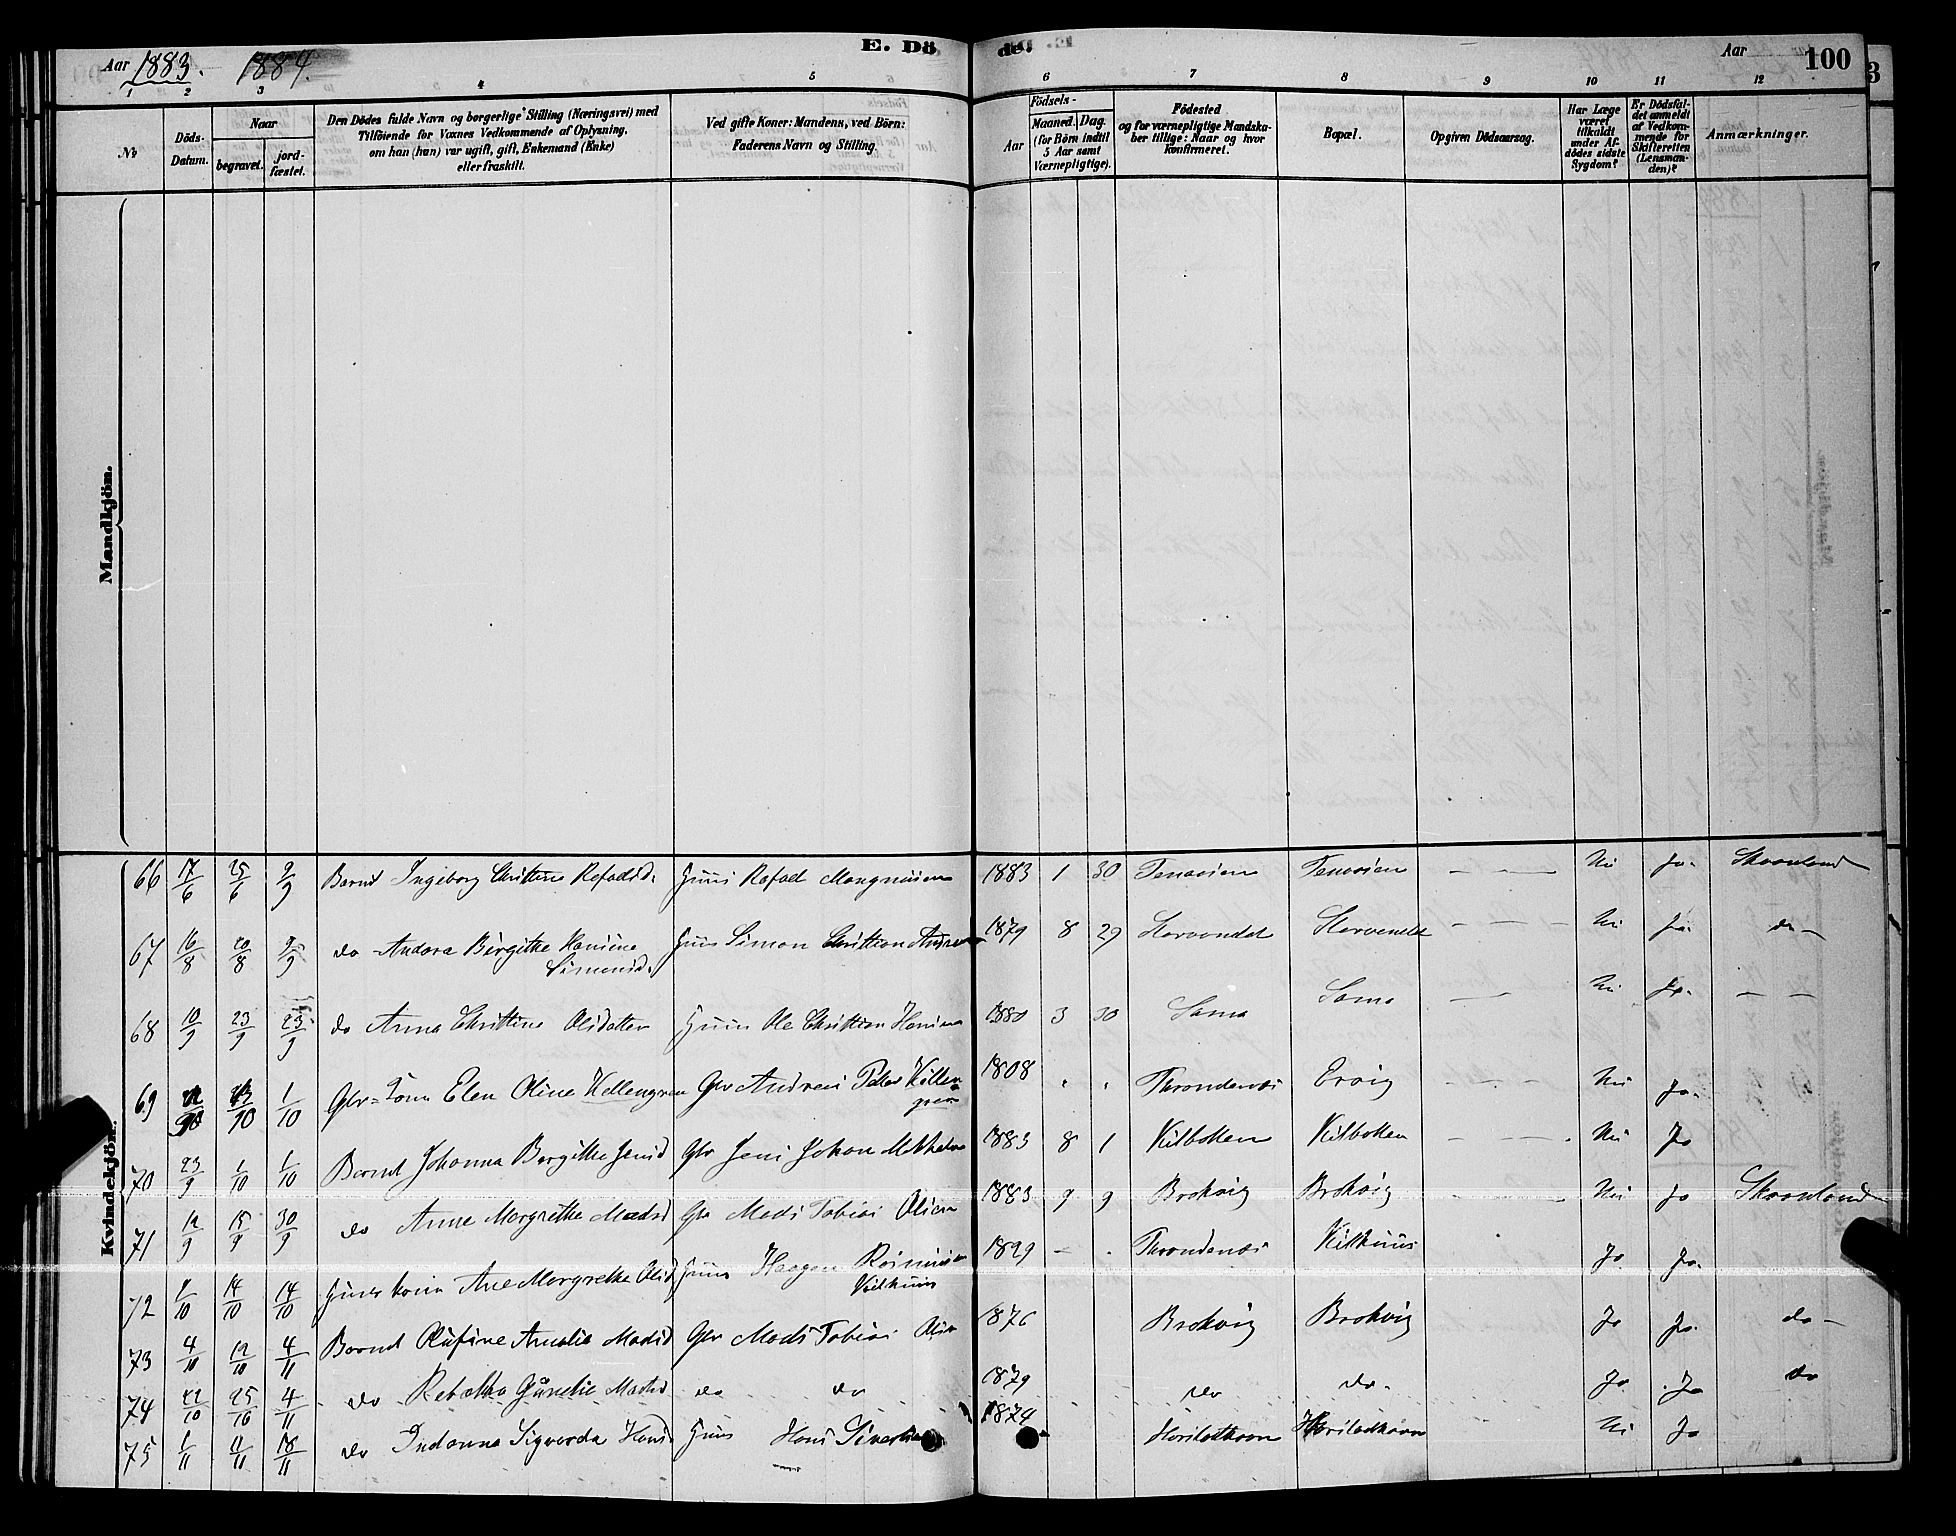 Aar 1883. 1884.
E. Döde.
Aar
100
1 2 3 4 5 6 7 8 9 10 11 12
№
Döds-Datum.
Naar
begravet.
jord-fæstet.
Den Dödes fulde Navn og borgerlige Stilling (Næringsvei) med
Tilföiende for Voxnes Vedkommende af Oplysning,
om han (hun) var ugift, gift, Enkemand (Enke)
eller fraskilt.
Ved gifte Koner: Mandens, ved Börn:
Faderens Navn og Stilling.
Födsels-
Aar
Maaned. Dag.
(for Börn indtil
5 Aar samt
Værnepligtige).
Födested
og for værnepligtige Mandska-
ber tillige: Naar og hvor
konfirmeret.
Bopæl.
Opgiven Dödsaarsag.
Har Læge
været
tilkaldt
under Af-
dödes sidste
Sygdom?
Er Dödsfal-
det anmeldt
af Vedkom-
mende for
Skifteretten
(Lensman-
den)?
Anmærkninger.
Mandkjön.
Kvindekjön.
66 17/6 25/6 2/9 Barnet Ingeborg Christine Refadsd. Huus Rafael Mangnusen 1883 1 30 Tenaasien Tenaasien — — Nei Ja. Skaanland
67 16/8 20/8 2/9 do Andora Birgithe Hansine Huus Simon Christian Andrea 1879 8 29 Storvandet Storvandet — — Nei Ja. do —
Simonsd.
68 10/9 23/9 23/9 do Anna Christine Olsdatter Huus Ole Christian Hansen 1880 3 30 Sama Sama — — Nei Ja. — —
69 10 1/10 Gbr-Kone Elen Oline Kellengren Gbr Andreas Peter Killen 1808 Throndenæs Ervig — — Nei Ja.
gren
70 23/9 1/10 1/10 Barnet Johanna Bergithe Jensd Gbr Jens Johan Mikkelsen 1883 8 1 Kilbotten Kilbotten — — Nei Ja
71 12/9 15/9 30/9 do Anne Margrethe Madsd Gbr Mads Tobias Olsen 1883 9 9 Brokvig Brokvig Nei Ja Skaanland
72 1/10 14/10 14/10 Huus kone Ane Margrethe Olsd Huus Haagen 1829 — Throndenæs Kilkuus Ja Ja.
73 4/10 12/10 4/11 Barnet Rufine Amalie Madsd Gbr Mads Tobias Olsen 1876 Brokvig Brokvig Ja Ja. do —
74 22/10 25/10 4/11 do Rebekka Madsd do do 1879 do do. Ja Ja do
75 1/11 11/11 18/11 do Indanna Sigvarda Hansd Huus Hans Sivertsen 1874 Nei Ja